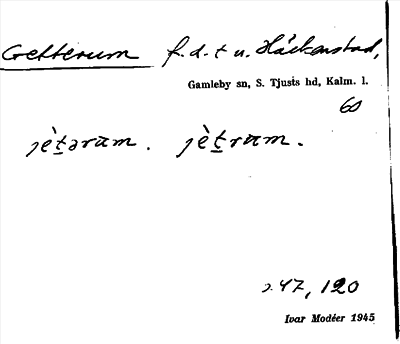 Getterum f.d.t u. Häckenstad,
Gamleby sn, S. Tjusts hd, Kalm. l.
60
jètərum. jètrum.
s. 47, 120
Ivar Modéer 1945